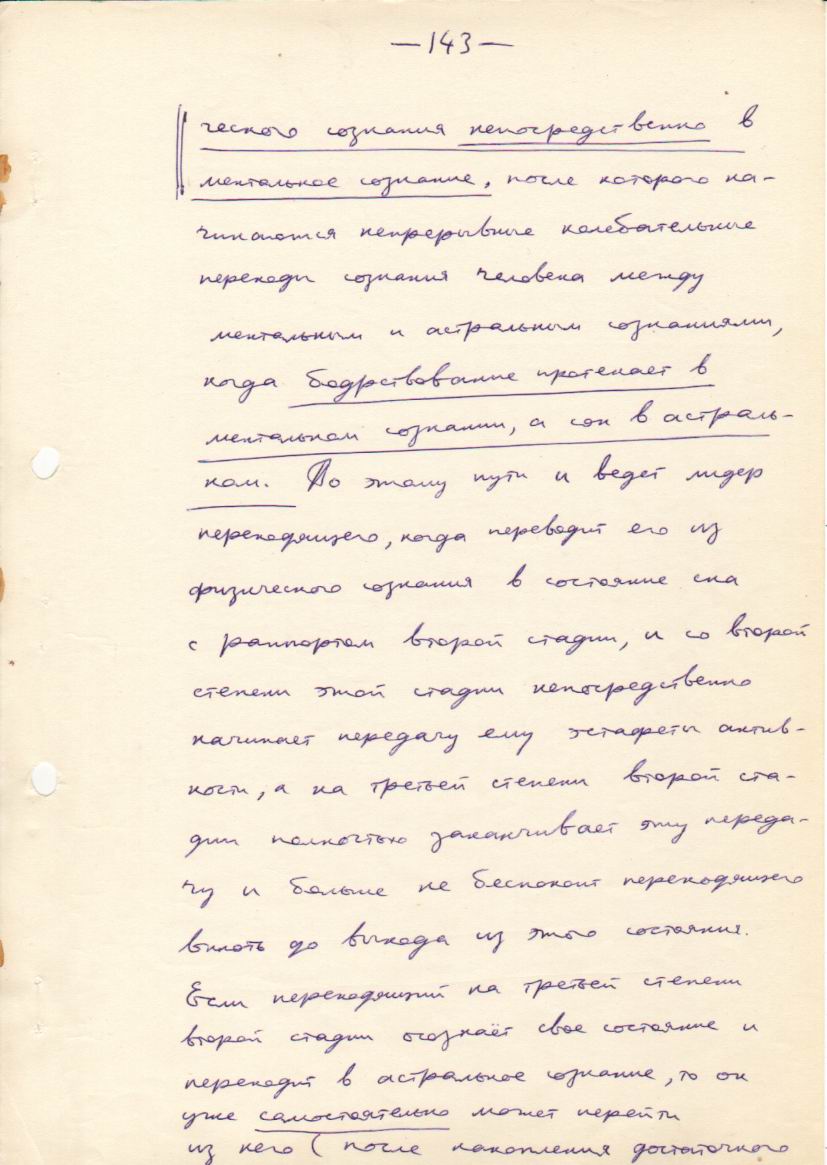 —143—
ческого сознания непосредственно в
ментальное сознание, после которого на-
чинаются непрерывные колебательные
переходы сознания человека между
ментальным и астральным сознаниями,
когда бодрствование протекает в
ментальном сознании, а сон в астраль-
ном. По этому пути и ведет лидер
переходящего, когда переводит его из
физического сознания в состояние сна
с раппортом второй стадии, и со второй
степени этой стадии непосредственно
начинает передачу ему эстафеты актив-
ности, а на третьей степени второй ста-
дии полностью заканчивает эту переда-
чу и больше не беспокоит переходящего
вплоть до выхода из этого состояния.
Если переходящий на третьей степени
второй стадии осознаёт свое состояние и
переходит в астральное сознание, то он
уже самостоятельно может перейти
из него (после накопления достаточного